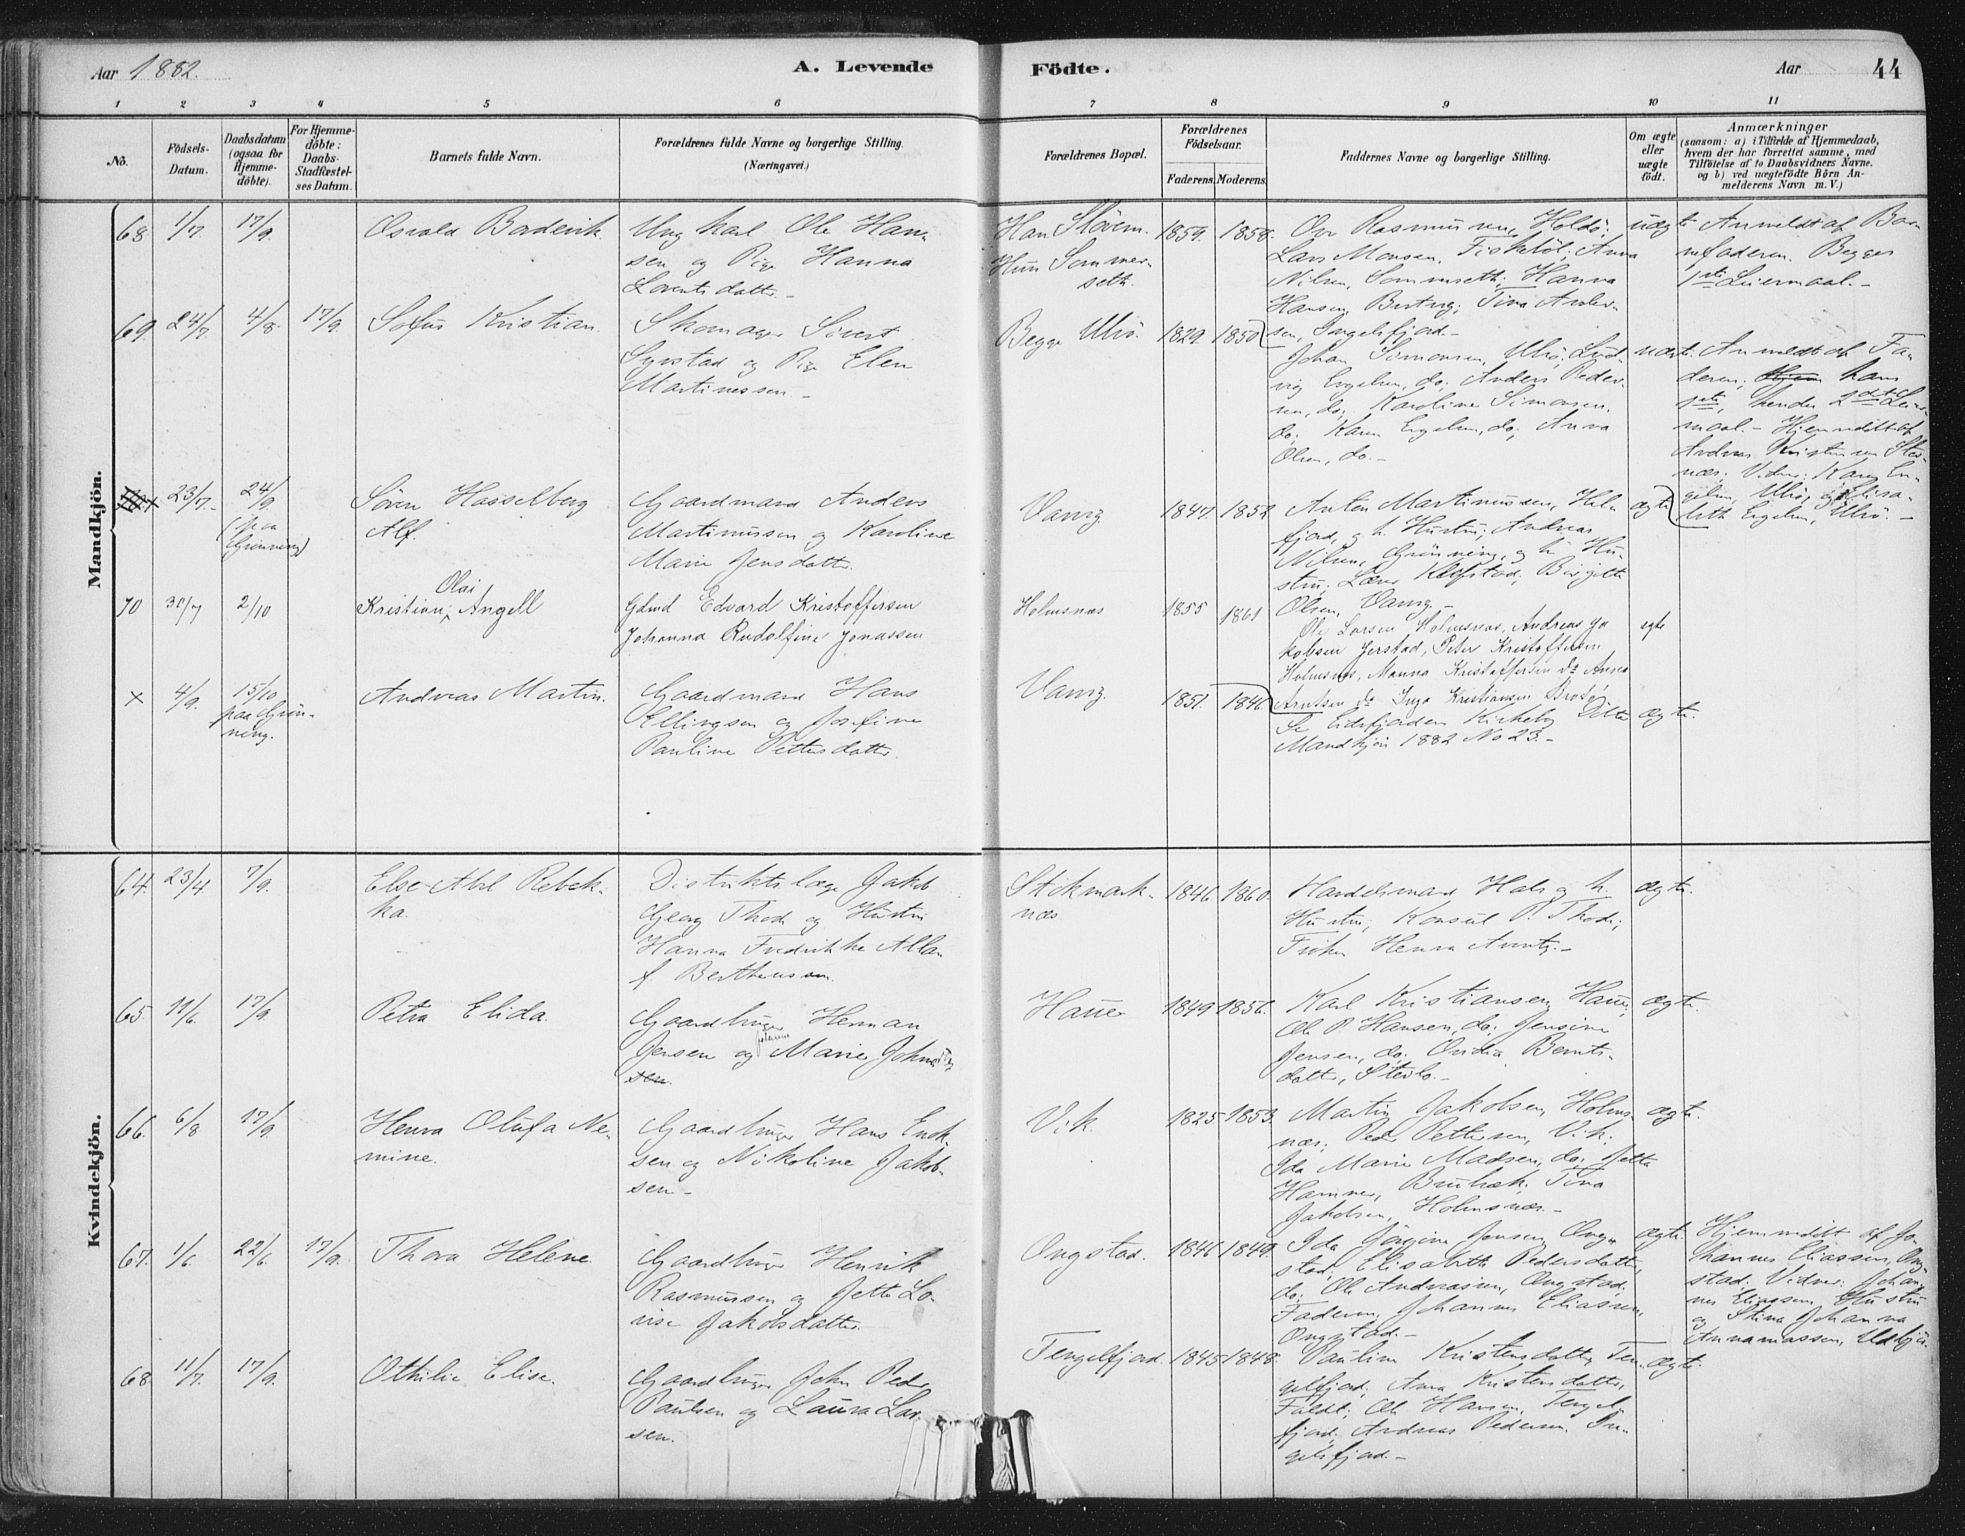 Aar 1882.
A. Levende
Födte.
Aar
44
1 2 3 4 5 6 7 8 9 10 11
No.
Födsels-
Datum.
Daabsdatum
(ogsaa for
Hjemme-
döbte).
For Hjemme-
döbte:
Daabs-
Stadfæstel-
ses Datum.
Barnets fulde Navn.
Forældrenes fulde Navne og borgerlige Stilling.
(Næringsvei.)
Forældrenes Bopæl.
Forældrenes
Födselsaar.
Faderens. Moderens.
Faddernes Navne og borgerlige Stilling.
Om ægte
eller
uægte
födt.
Anmærkninger
(saasom: a) i Tilfælde af Hjemmedaab,
hvem der har forrettet samme, med
Tilföielse af to Daabsvidners Navne,
og b) ved uægtefödte Börn An-
melderens Navn m. V.)
Mandkjön.
68 1/7 17/9
Osvald Boderik
Ungkarl Ole Han-
sen og Pige Hanna
Lorentsdatter
Han
Hun Sommer-
seth.
1859. 1858.
Ove Rasmussen, Holdö;
Lars Monsen, Anna
Nilsen, Sommerseth; Hanna
Hansen, Tina Ander-
sen, Ingelsfjord.
uægte
Anmeldt af Bar-
nefaderen. Begges
1ste Leiermaal.
69. 24/7 4/8. 17/9.
Sofus Kristian.
Skomager Sivert
Syvstad og Pige Elen
Martinussen
Begge Ulvö.
1829. 1850
Johan Simonsen, Ulvö; Lud-
vig Engelsen, do; Anders Peder-
sen, do; Karoline Simonsen,
do; Karen Engelsen, do; Anna
Olsen, do.
uægte
Anmeldt af Fa-
deren; hans
1ste, hendes 2det Leier-
maal. Hjemmedöbt af
Andreas Kristensen
Vidner: Karen En-
gelsen, Ulvö, og Elisa-
beth Engelsen, Ulvö.
23/7 24/9
(paa
Grönning)
Sören Hasselberg
Alf.
Gaardmand Anders
Martinussen og Karoline
Marie Jensdatter.
Vangs.
1847. 1852.
Anton Martinussen, Hel-
fjord, og h. Hustru; Andreas
Nilsen, Grönning, og h. Hu-
stru; Lærer Klefstad; Birgitte
Olsen, Vangs.
ægte
70 30/7 2/10
Olai
Kristian Angell
Gdmd Edvard Kristoffersen
Johanna Rudolfine Jonassen
Holmsnæs
1855 1861
Ole Larsen Holmsnæs, Andreas Ja
kobsen Jerstad, Peter Kristoffersen
Holmsnæs, Manna Kristoffersen do Anna
Arntsen do Inga Kristiansen
ægte
x 4/9. 15/10
paa Grön-
ning.
Andreas Martin.
Gaardmand Hans
Ellingsen og Josefine
Pauline Pettersdatter.
Vangs.
1851. 1846.
Se Eidsfjordens Kirkebog Döbte
Mandkjön 1882 No 23.
ægte.
Kvindekjön.
64. 23/4 7/9.
Else Abel Rebek-
ka.
Distriktslæge Jakob
Georg Thode og Hustru
Hanna Fredrikke Allan
f. Bertheussen.
Stokmark-
næs.
1846. 1860.
Handelsmand Hals og h.
Hustru; Konsul P. Thode;
Fröken Henra
ægte.
65. 11/6. 17/9.
Petra Elida.
Gaardbruger Herman
Jensen og Johanna Marie
Hauer
1849 1856.
Karl Kristiansen, Hauer,
Ole P. Hansen, do; Jensine
Jensen, do; Ovidia Bernts-
datter, Steilo.
ægte.
66. 6/8 17/9.
Henra Olufa Ne-
mine.
Gaardbruger Hans Enok-
sen og Nikoline Jakob-
sen
Vik.
1825 1853.
Martin Jakobsen, Holms-
næs; Peder Pettersen, Vik;
Ida Marie Madsen, do; Jette
Hamner, Tina
Jakobsen, Holmsnæs.
ægte.
67. 1/6. 22/6. 17/9.
Thora Helene.
Gaardbruger Henrik
Rasmussen og Jette Lo-
vise Jakobsdatter.
Ongstad.
1846 1849.
Ida Jörgine Jensen, Ong-
stad; Elisabeth Pedersdatter,
do; Ole Andreassen, Ongstad;
Faderen, Johannes Eliassen,
Ongstad.
ægte.
Hjemmedöbt af Jo-
hannes Eliassen, Ong-
stad. Vidner: Johan-
nes Eliassens Hustru
og Stina Johanna
68. 11/7. 17/9.
Othilie Elise.
Gaardbruger John Peder
Paulsen og Laura Lar-
sen.
Tengelfjord.
1845 1848.
Pauline Kristensdatter, Ten-
gelfjord; Anna Kristensdatter,
Faldet; Ole Hansen, Tengel-
fjord; Andreas Pedersen, In-
gelsfjord.
ægte.